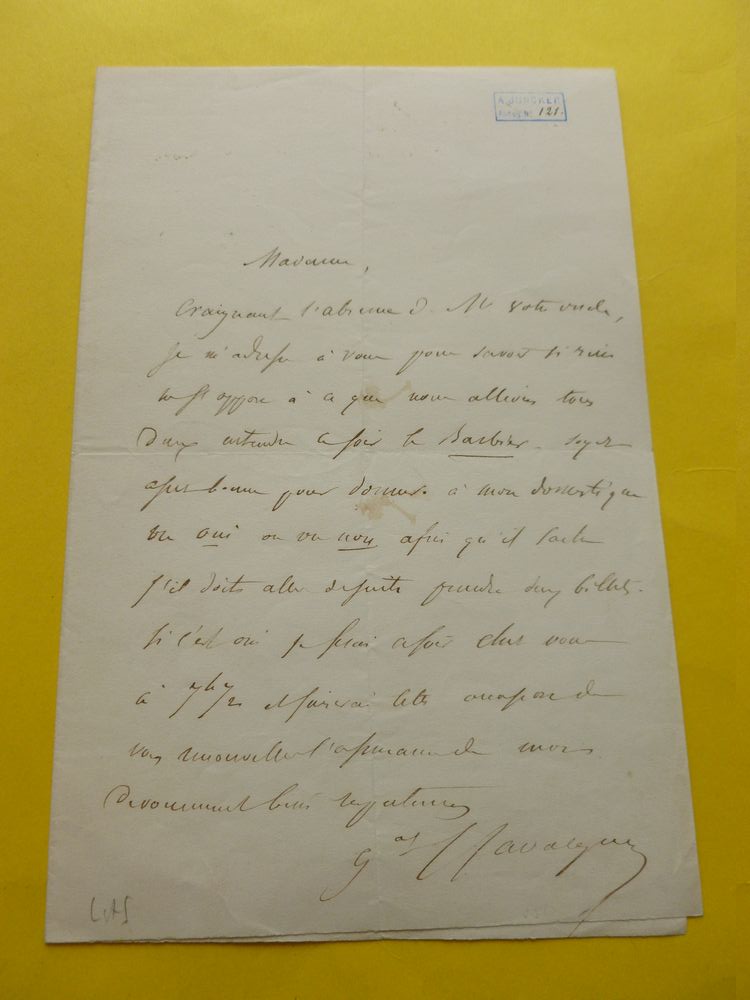 A. JUNCKER
121.
Madame,
Craignant l'absence de Mr votre oncle,
je m'adresse à vous pour savoir si rien
ne s'oppose à ce que nous allions tous
deux entendre ce soir le Barbier. soyez
assez bonne pour donner à mon domestique
un oui ou un non afin qu'il sache
s'il doit aller de suite prendre deux billets.
si c'est oui je serai ce soir chez vous
à 7h 1/2 et saisirai cette occasion de
vous renouveller l'assurance de mon
Dévouement bien respectueux
Gal
LAS